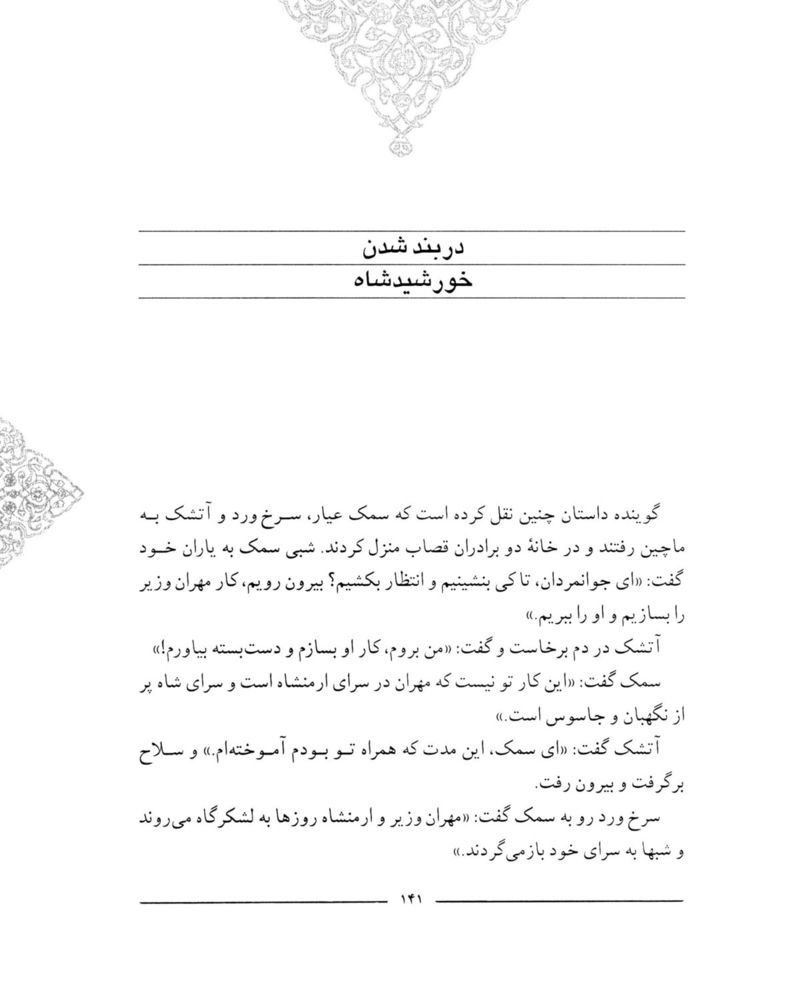 در بند شدن
خورشیدشاه
گوینده داستان چنین نقل کرده است که سمک عیار، سرخ ورد و آتشک به
ماچین رفتند و در خانهٔ دو برادران قصاب منزل کردند. شبی سمک به یاران خود
گفت: «ای جوانمردان، تا کی بنشینیم و انتظار بکشیم؟ بیرون رویم، کار مهران وزیر
را بسازیم و او را ببریم.»
آتشک در دم برخاست و گفت: «من بروم، کار او بسازم و دست‌بسته بیاورم!»
سمک گفت: «این کار تو نیست که مهران در سرای ارمنشاه است و سرای شاه پر
از نگهبان و جاسوس است.»
آتشک گفت: «ای سمک، این مدت که همراه تو بودم آموخته‌ام.» و سلاح
برگرفت و بیرون رفت.
سرخ ورد رو به سمک گفت: «مهران وزیر و ارمنشاه روزها به لشکرگاه می‌روند
و شبها به سرای خود بازمی‌گردند.»
۱۴۱